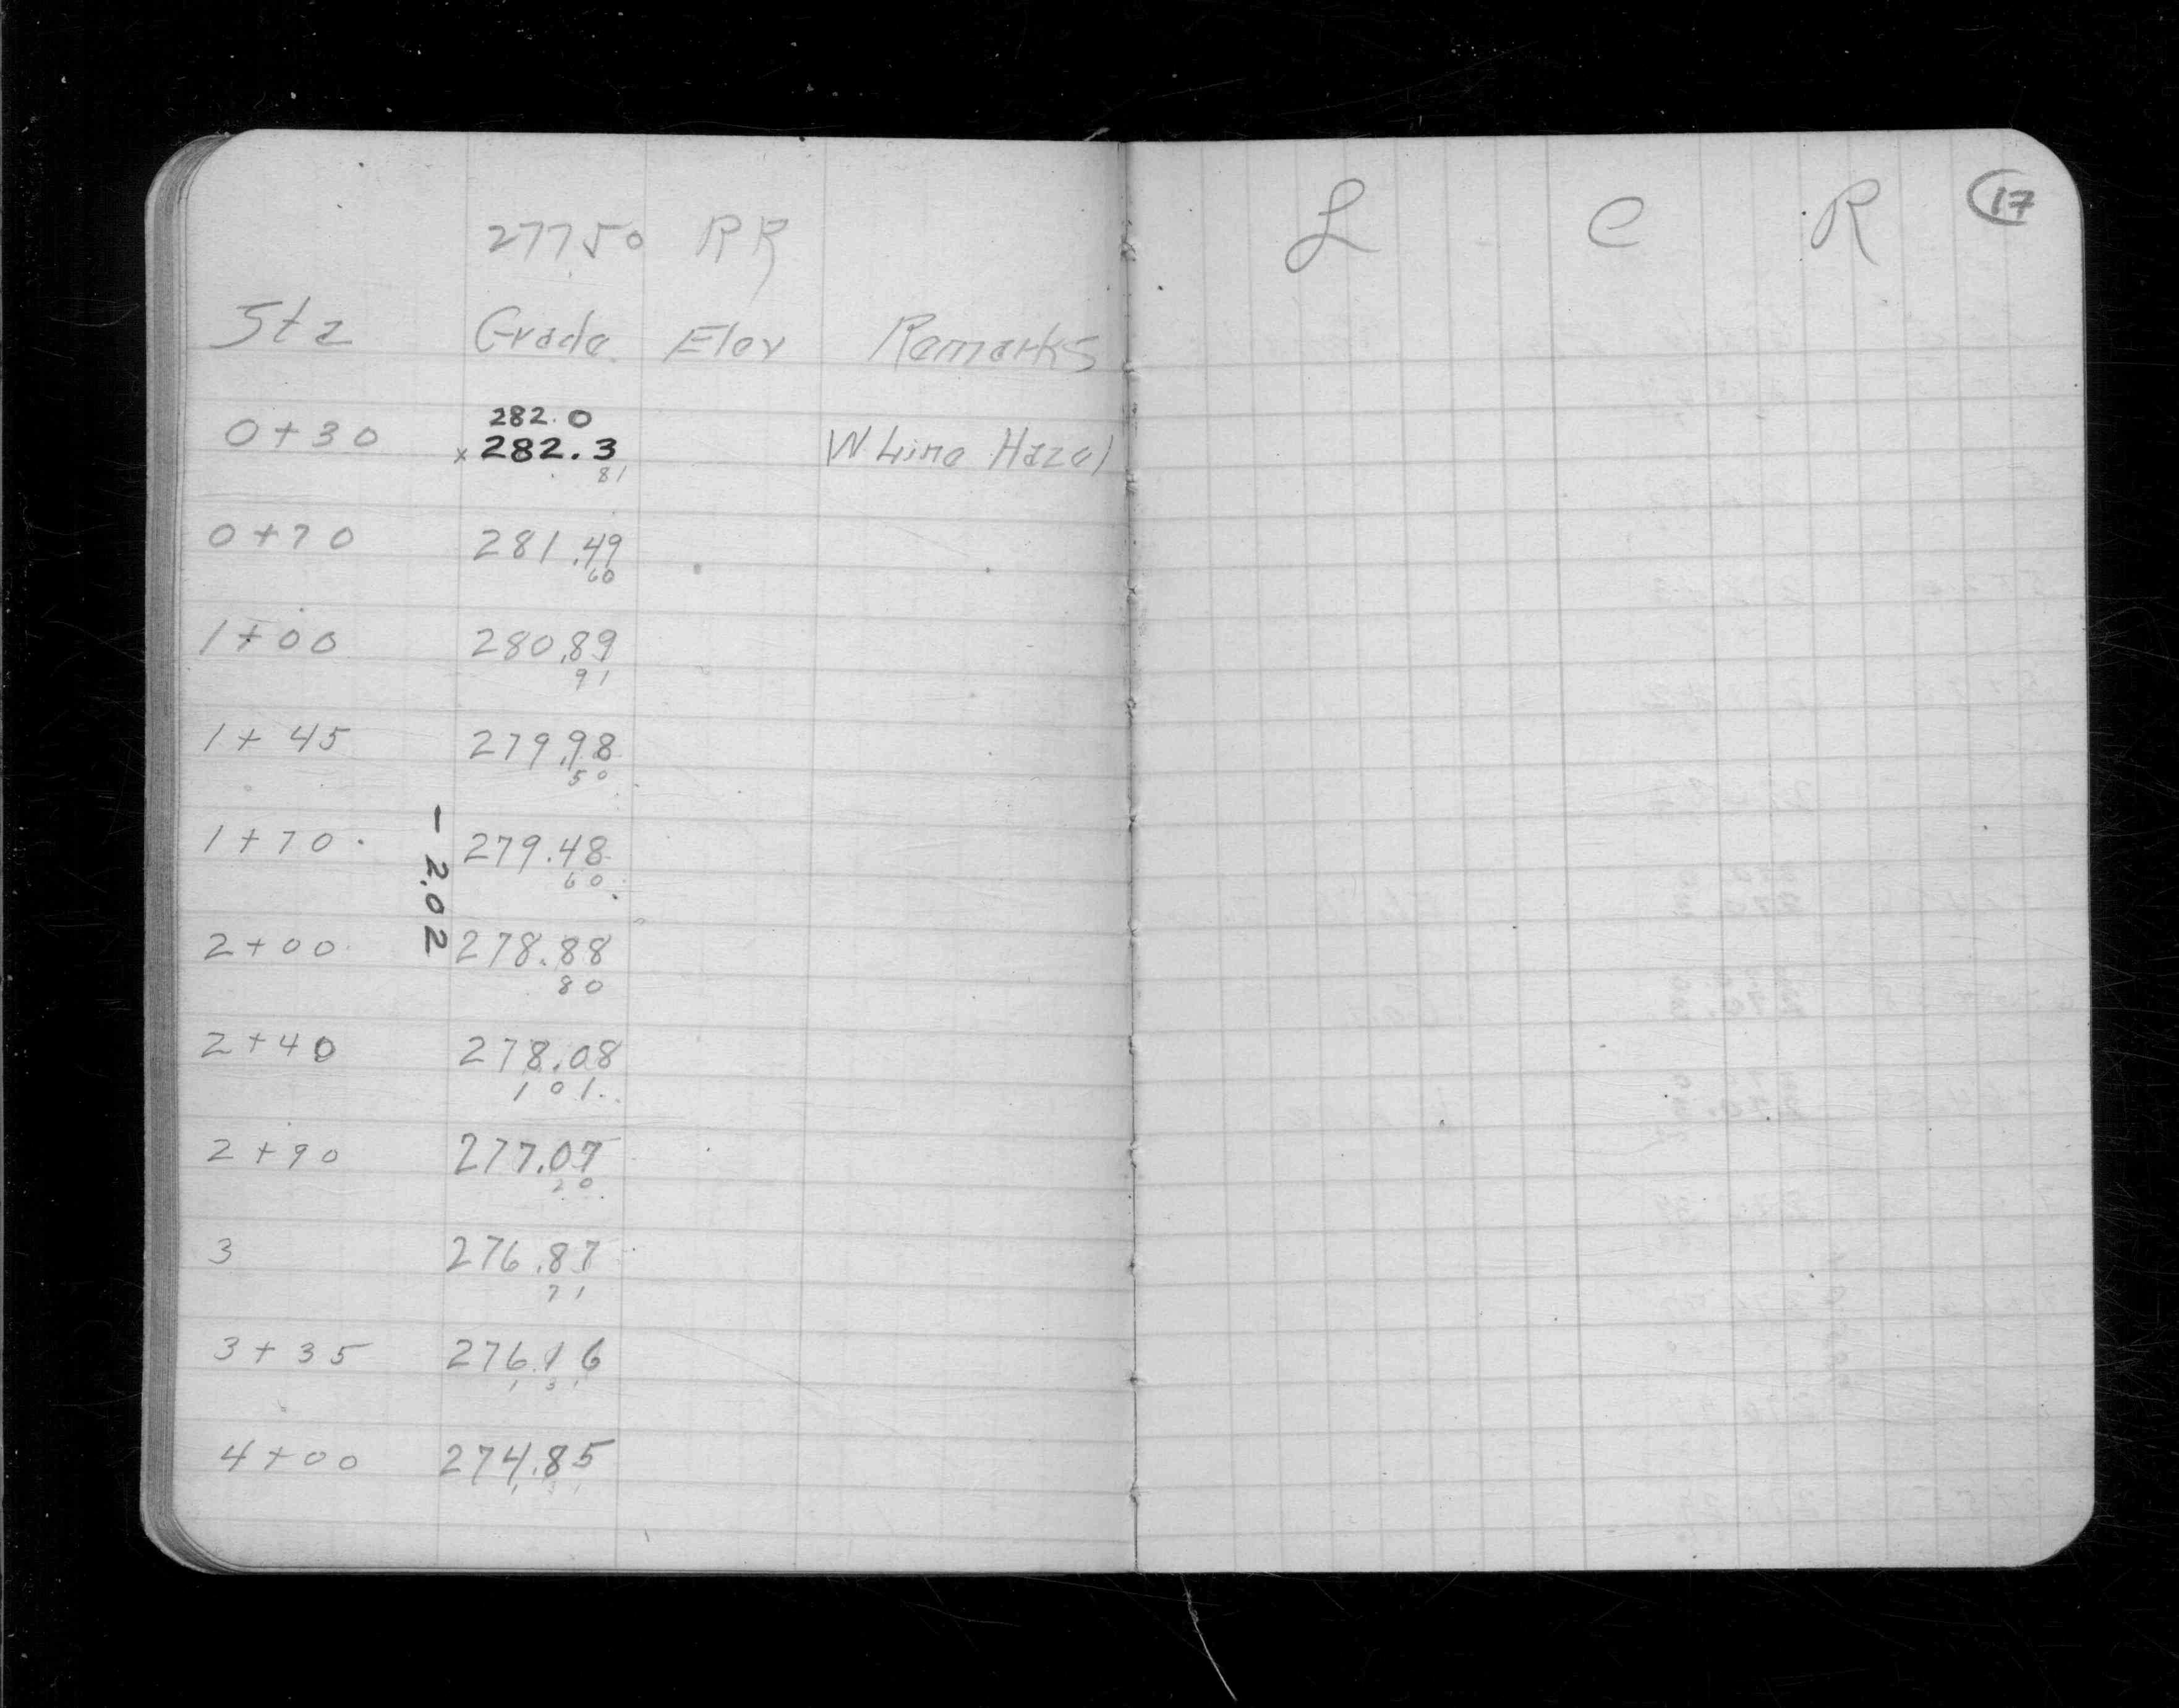 27750 RR
Sta Grade Elev Remarks
282.0
0+30 x 282.3 W Line Hazel
81
0+70 281.49
60
1+00 280.89
91
1+45 279.98
50
1+70 279.48
60
- 2.02
2+00 278.88
80
2+40 278.08
1 01
2+90 277.07
20
3 276.87
71
3+35 276.16
1 31
4+00 274.85
L C R 17